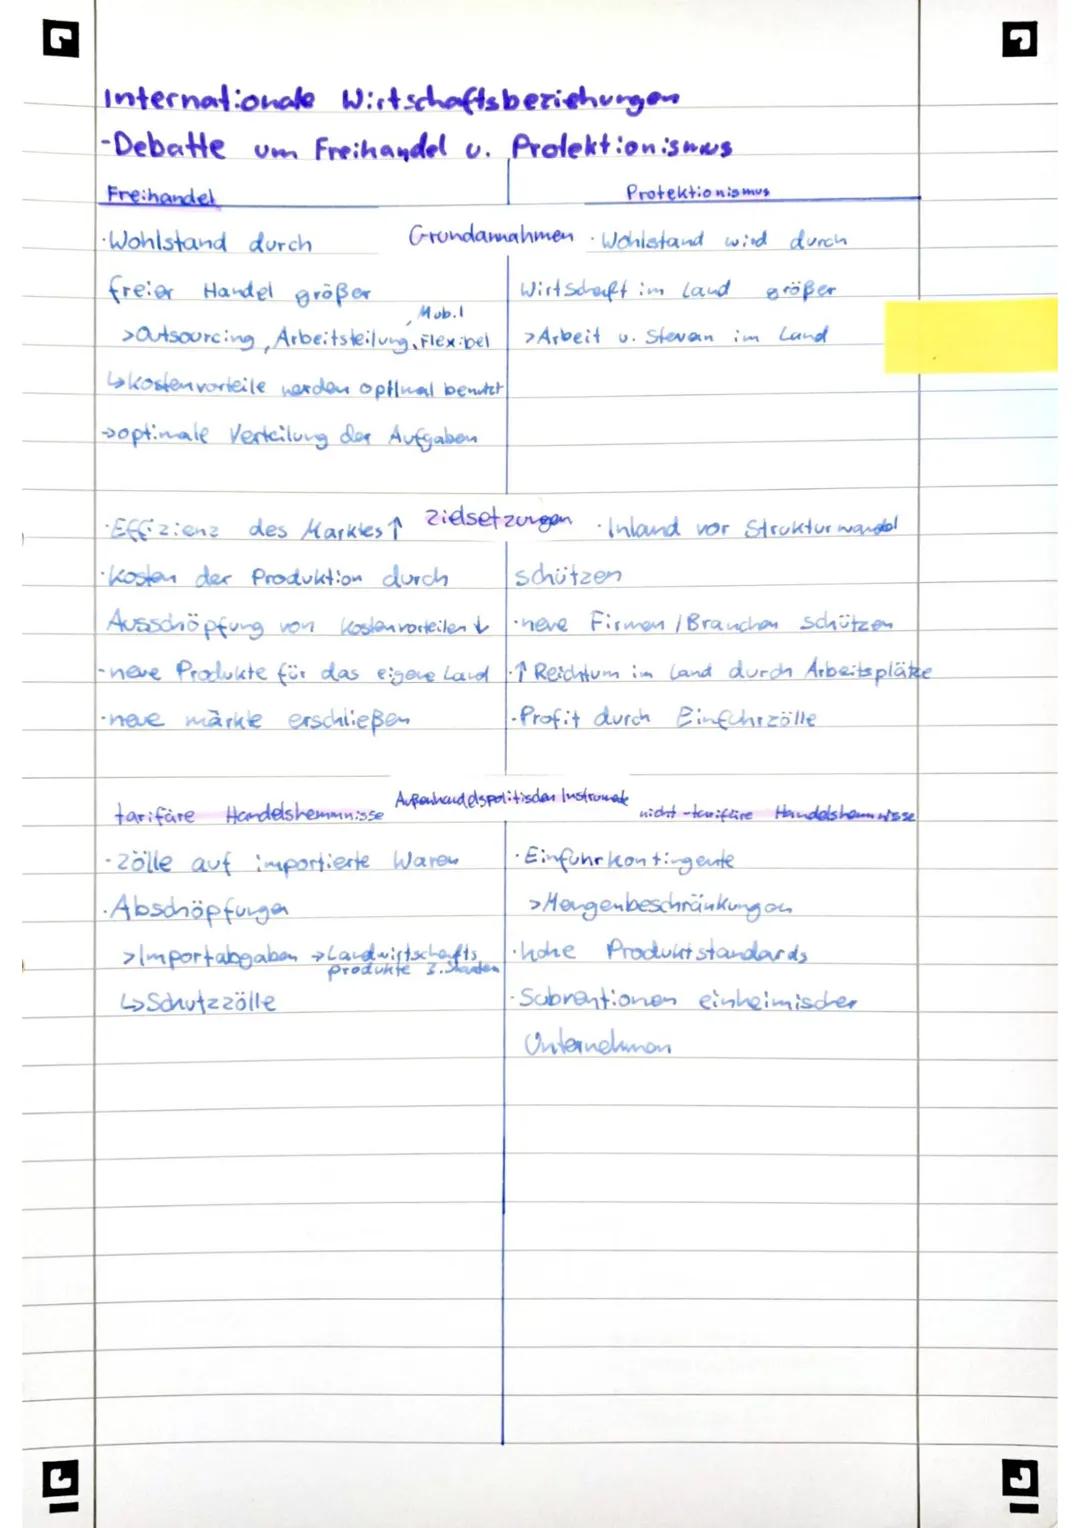 Internationale Wirtschaftsbeziehungen
-Debatte um Freihandel u. Protektionismus
Freihandel
Protektionismus
Grundannahmen
·Wohlstand durch
freier Handel größer
, Mobil
>Outsourcing, Arbeitsteilung, Flexibel
↳Kostenvorteile werden optimal benutzt
→optimale Verteilung der Aufgaben
·Wohlstand wird durch
Wirtschaft im Land größer
>Arbeit u. Steuern im Land
Zielsetzungen
·Effizienz des Marktes↑
·Kosten der Produktion durch
Ausschöpfung von Kostenvorteilen ↓
-neue Produkte für das eigene Land
·neue märkte erschließen
·Inland vor Strukturwandel
schützen
·neue Firmen/Branchen schützen
·↑ Reichtum im Land durch Arbeitsplätze
·Profit durch Einfuhrzölle
Außenhandelspolitischen Instrumente
tarifäre Handelshemmnisse
·Zölle auf importierte Waren
·Abschöpfungen
>Importabgaben →Landwirtschafts
produkte 3. Staaten
↳Schutzzölle
nicht-tarifäre Handelshemmnisse
·Einfuhrkontingente
>Mengenbeschränkungen
·hohe Produktstandards
·Subventionen einheimischer
Unternehmen